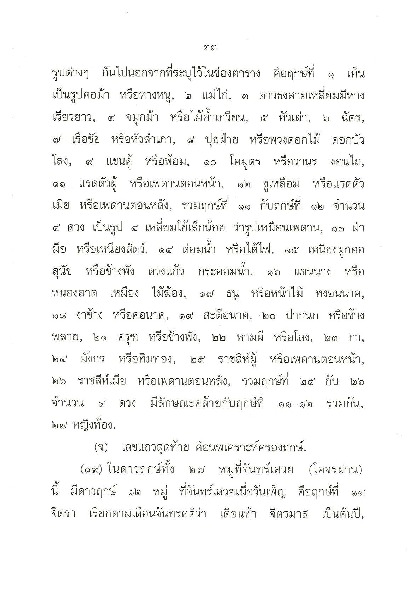 รูปต่างๆ กันไปนอกจากที่ระบุไว้ในช่องตาราง คือฤกษ์ที่ ๑ เห็น
เป็นรูปคอม้า หรือหางหนู, ๒ แม่ไก่, ๓ สามเหลี่ยมมีหาง
เรียวยาว, ๔ จมูกม้า หรือไม้ค้ำเกวียน, ๕ หัวเต่า, ๖ ฉัตร,
๗ เรือชัย หรือหัวสำเภา, ๘ ปุยฝ้าย หรือพวงดอกไม้ ดอกบัว
โลง, ๙ แขนคู้ หรือพ้อม, ๑๐ โคมูตร หรือวานร
๑๑ แรดตัวผู้ หรือเพดานตอนหน้า, ๑๒ งูเหลือม หรือแรดตัว
เมีย หรือเพดานตอนหลัง, รวมฤกษ์ที่ ๑๑ กับฤกษ์ที่ ๑๒ จำนวน
๔ ดวง เป็นรูป ๔ เหลี่ยมโย้เล็กน้อย ว่ารูปเหมือนเพดาน, ๑๓ ฝ่า
มือ หรือเหนียงสัตว์, ๑๔ ต่อมน้ำ หรือไต้ไฟ, ๑๕ เหนียงผูกคอ
สุนัข หรือช้างพัง ดวงแก้ว กระออมน้ำ, ๑๖ แขนนาง หรือ
หนองลาด เหมือง ไม้ฆ้อง, ๑๗ ธนู หรือหน้าไม้ หงอนนาค,
๑๘ งาช้าง หรือคอนาค, ๑๙ สะดือนาค, ๒๐ ปากนก หรือช้าง
พลาย, ๒๑ ครุฑ หรือช้างพัง, ๒๒ หามผี หรือโลง, ๒๓ กา,
๒๔ มังกร หรือหิมทอง, ๒๕ ราชสีห์ผู้ หรือเพดานตอนหน้า,
๒๖ ราชสีห์เมีย หรือเพดานตอนหลัง, รวมฤกษ์ที่ ๒๕ กับ ๒๖
จำนวน ๔ ดวง มีลักษณะคล้ายกับฤกษ์ที่ ๑๑-๑๒ รวมกัน,
๒๗ หญิงท้อง.
(จ) เลขแถวสุดท้าย คือนพเคราะห์ครองฤกษ์.
(๑๙) ในดาวฤกษ์ทั้ง ๒๗ หมู่ที่จันทร์เสวย (โคจรผ่าน)
นี้ มีดาวฤกษ์ ๑๒ หมู่ ที่จันทร์เสวยเมื่อวันเพ็ญ คือฤกษ์ที่ ๑๔
จิตรา เรียกตามเดือนจันทรคติว่า เดือนห้า จิตรมาส เป็นต้นปี,